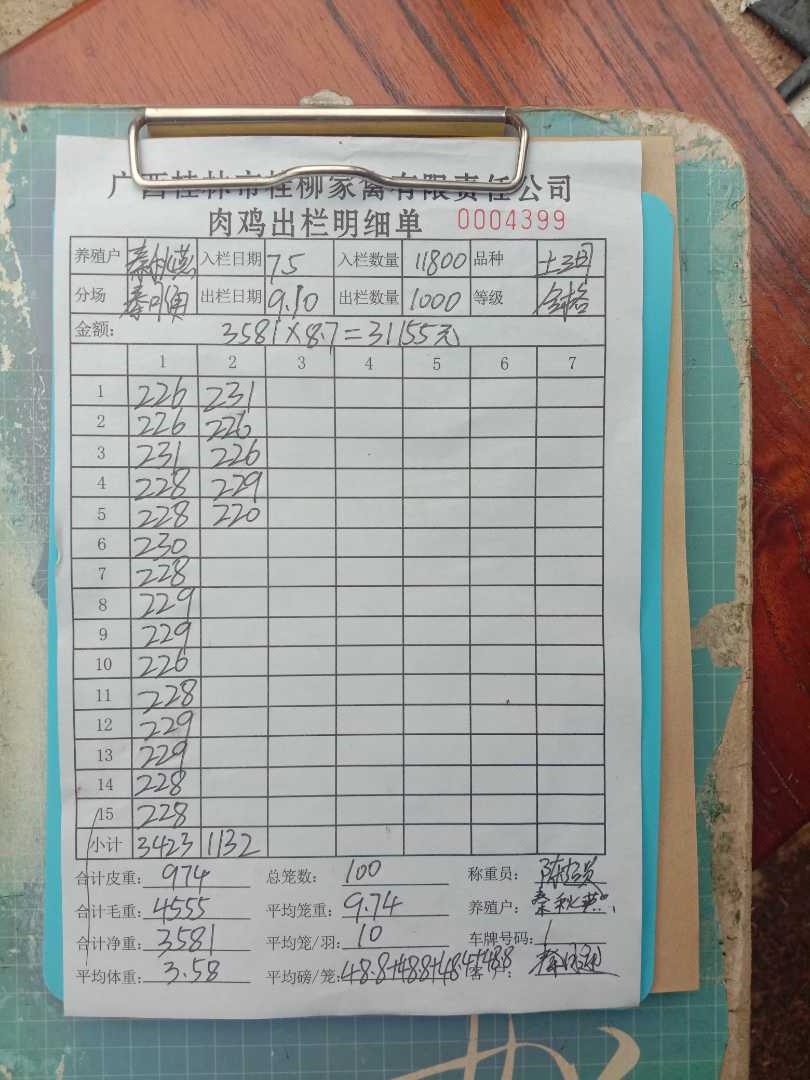 广西桂林市桂柳家禽有限责任公司
肉鸡出栏明细单 0004399
养殖户 秦秋燕 入栏日期 7.5 入栏数量 11800 品种
分场 出栏日期 9.10 出栏数量 1000 等级
金额: 3581×8.7=31155元
1 2 3 4 5 6 7
1 226 231
2 226 226
3 231 226
4 228 229
5 228 220
6 230
7 228
8 229
9 229
10 226
11 228
12 229
13 229
14 228
15 228
小计 3423 1132
合计皮重: 974 总笼数: 100 称重员:
合计毛重: 4555 平均笼重: 9.74 养殖户: 秦秋燕
合计净重: 3581 平均笼/羽: 10 车牌号码: /
平均体重: 3.58 平均磅/笼: 48.8+48.8+48.4+48.8 客户: